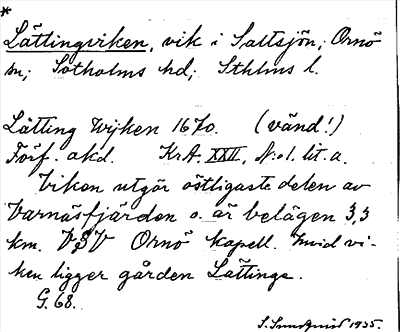 *
Lättingviken, vik i Saltsjön; Ornö
sn; Sotholms hd; Sthlms l.
Lätting Wijken 1670. (vänd!)
Förf. akd. KrA. XXII, N:o 1. lit. a.
Viken utgör östligaste delen av
Varnäsfjärden o. är belägen 3,3
km. VSV Ornö kapell. Invid vi-
ken ligger gården Lättinge.
G. 68.
S. Sundqvist 1935.